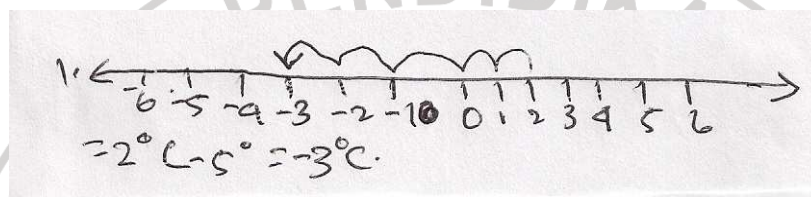 1.
-6 -5 -4 -3 -2 -1 0 1 2 3 4 5 6
= 2° C - 5° = -3°C.